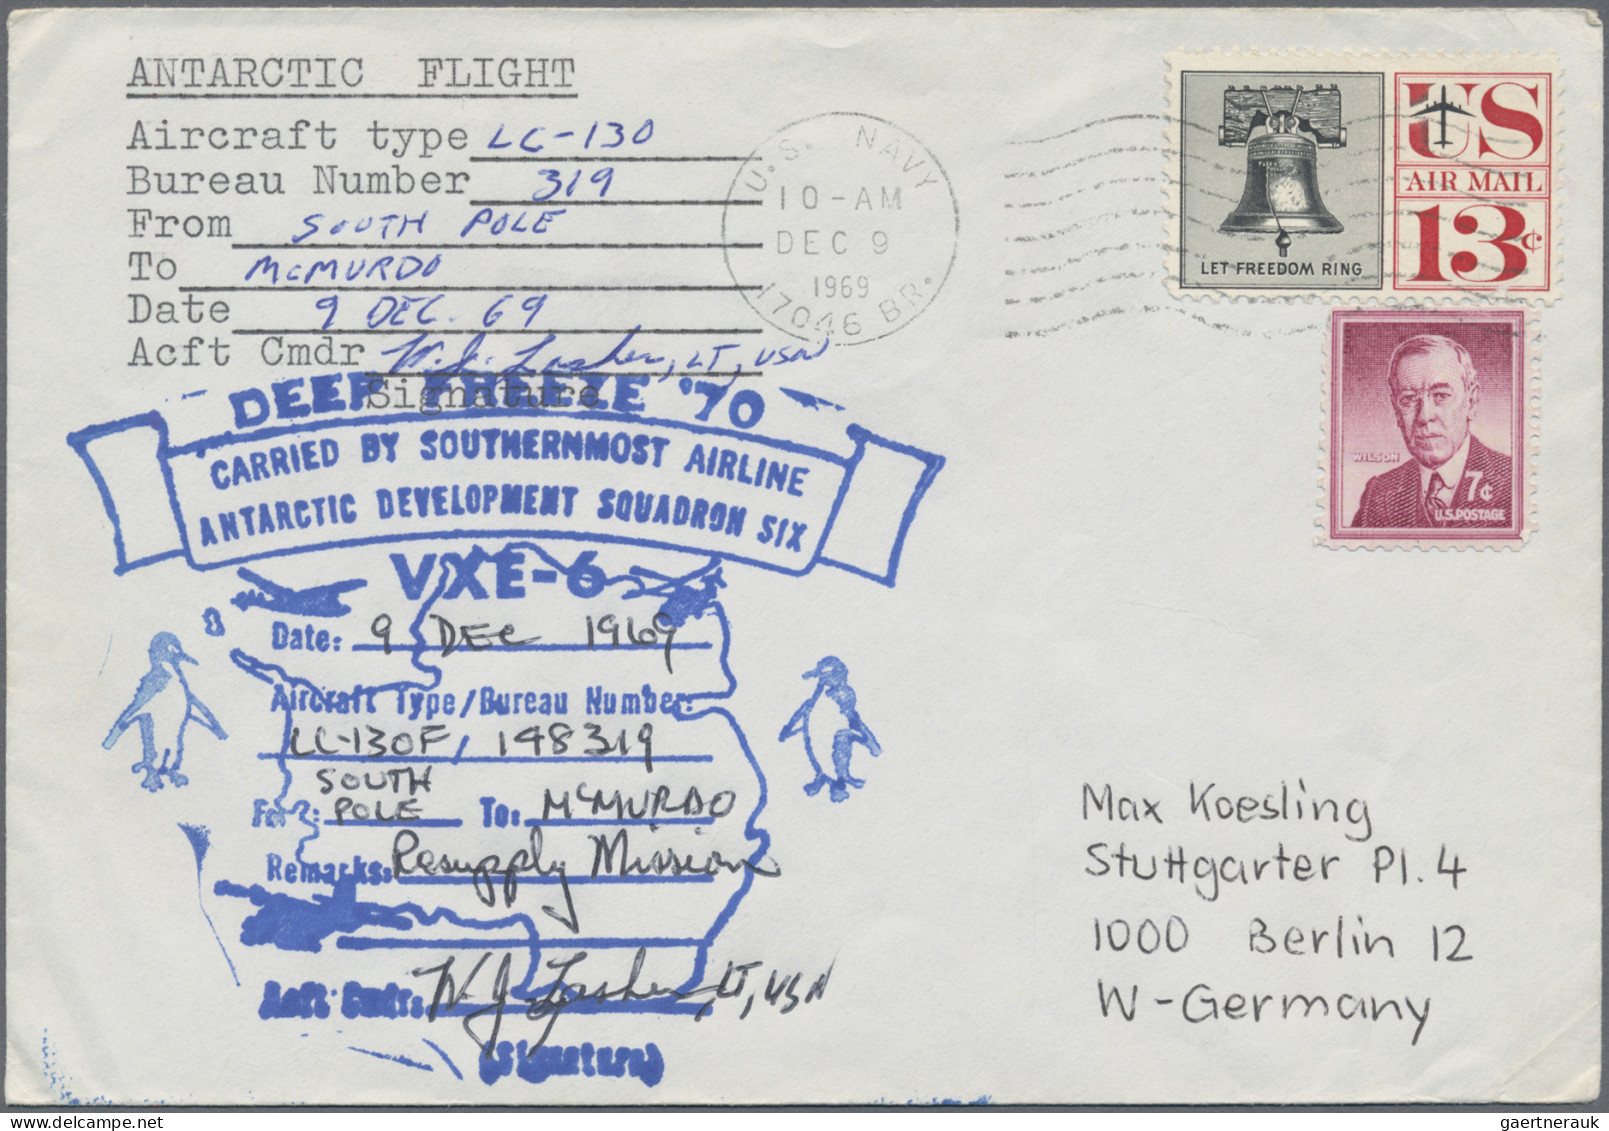 ANTARCTIC FLIGHT
Aircraft type LC-130
Bureau Number 319
From SOUTH POLE
To McMURDO
Date 9 DEC. 69
Acft Cmdr W. J. Lasher, LT, USN
Signature
U.S. NAVY
10-AM
DEC 9
1969
17046 BR.
LET FREEDOM RING
US
AIR MAIL
13¢
WILSON
7¢
U.S. POSTAGE
DEEP FREEZE '70
CARRIED BY SOUTHERNMOST AIRLINE
ANTARCTIC DEVELOPMENT SQUADRON SIX
VXE-6
Date: 9 DEC 1969
Aircraft Type/Bureau Number:
LC-130F/148319
SOUTH
POLE To: McMURDO
Remarks: Resupply Mission
Acft Cmdr: W. J. Lasher, LT, USN
(Signature)
Max Koesling
Stuttgarter Pl. 4
1000 Berlin 12
W-Germany
gaertnerauk